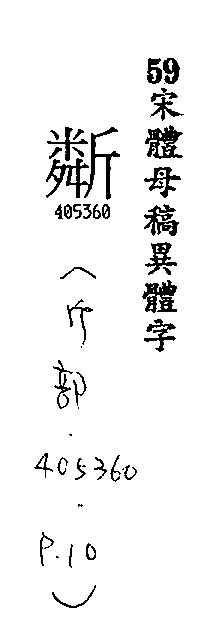 59宋體母稿異體字
斴
405360
(斤部.405360.P.10)